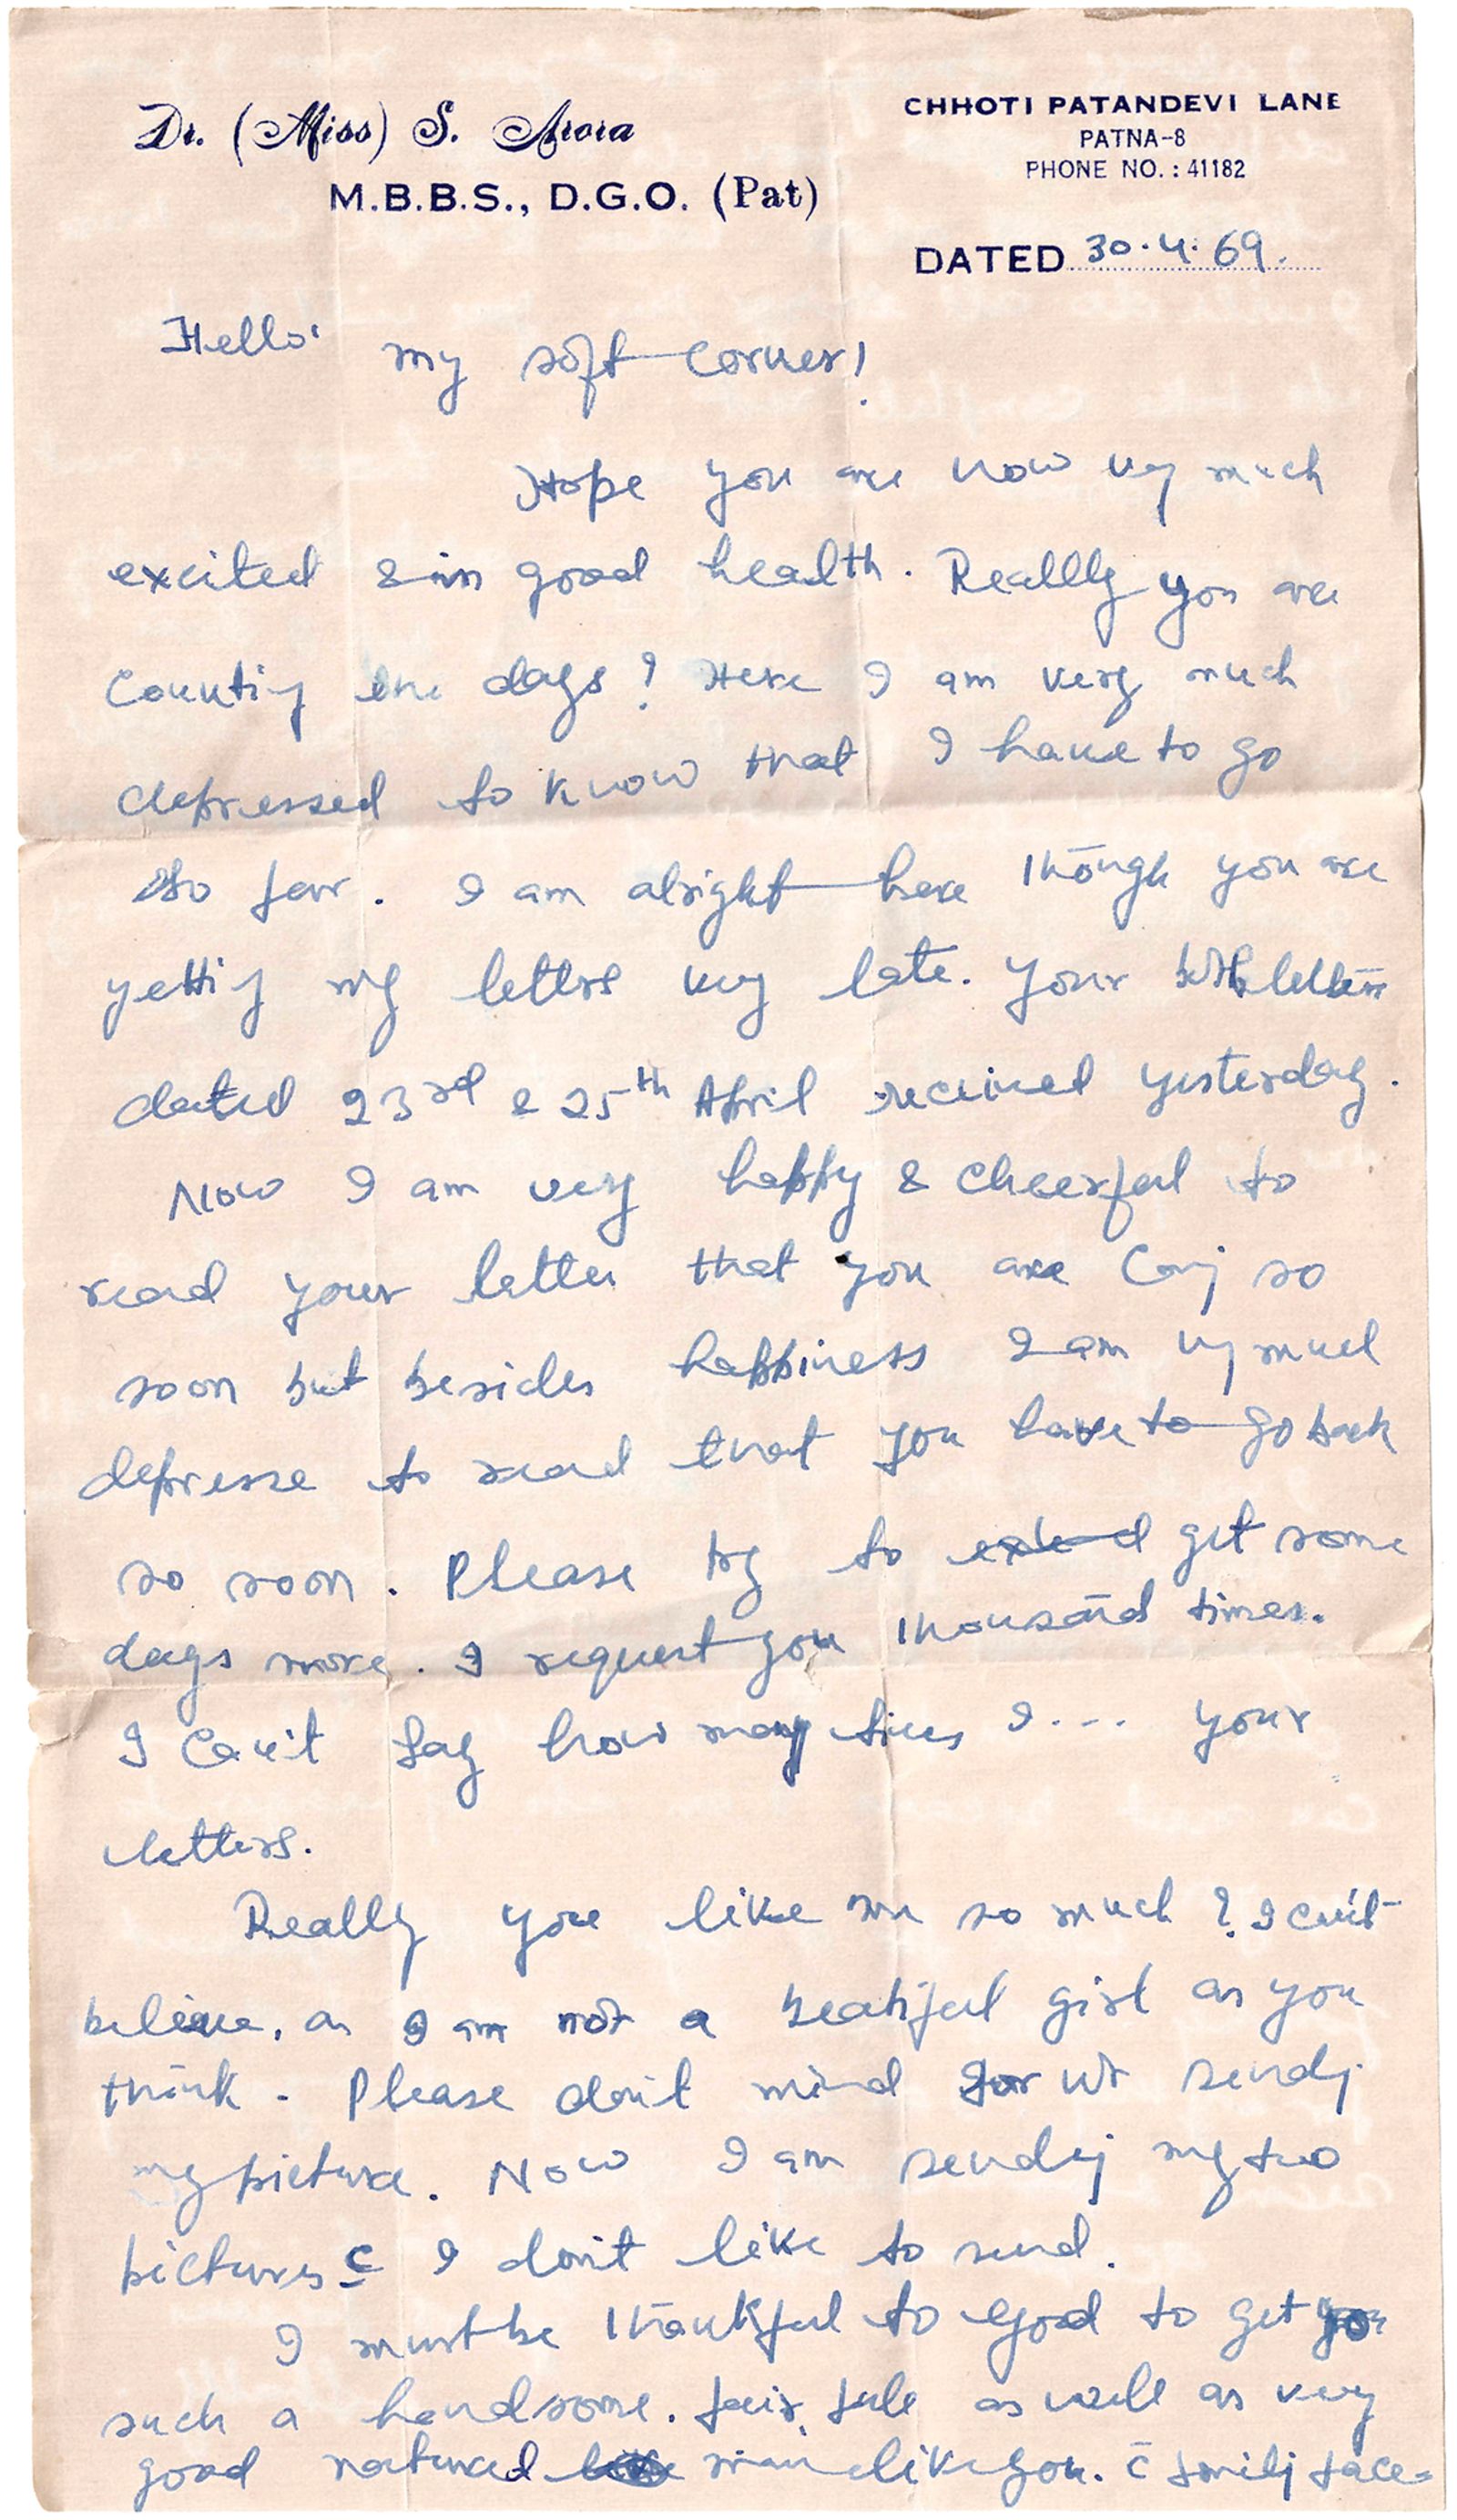 Dr. (Miss) S. Arora
M.B.B.S., D.G.O. (Pat)
CHHOTI PATANDEVI LANE
PATNA-8
PHONE NO. : 41182
DATED 30.4.69.
Hello!
my soft corner!
Hope you are now very much
excited & in good health. Reallly you are
counting the days? Here I am very much
depressed to know that I have to go
so far. I am alright here though you are
getting my letters very late. Your both letters
dated 23rd & 25th April received yesterday.
Now I am very happy & cheerful to
read your letter that you are Coming so
soon but besides happiness I am very much
depresse to read that you have to go back
so soon. Please try to extend get some
days more. I request you thousand times.
I can't say how many times I... your
letters.
Really you like me so much? I can't
believe, as I am not a beatiful girl as you
think. Please don't mind for not sending
my picture. Now I am sending my two
pictures c̄ I don't like to send.
I must be thankful to God to get you
such a handsome, fair, tall as well as very
good natured man like you. c̄ smiling face